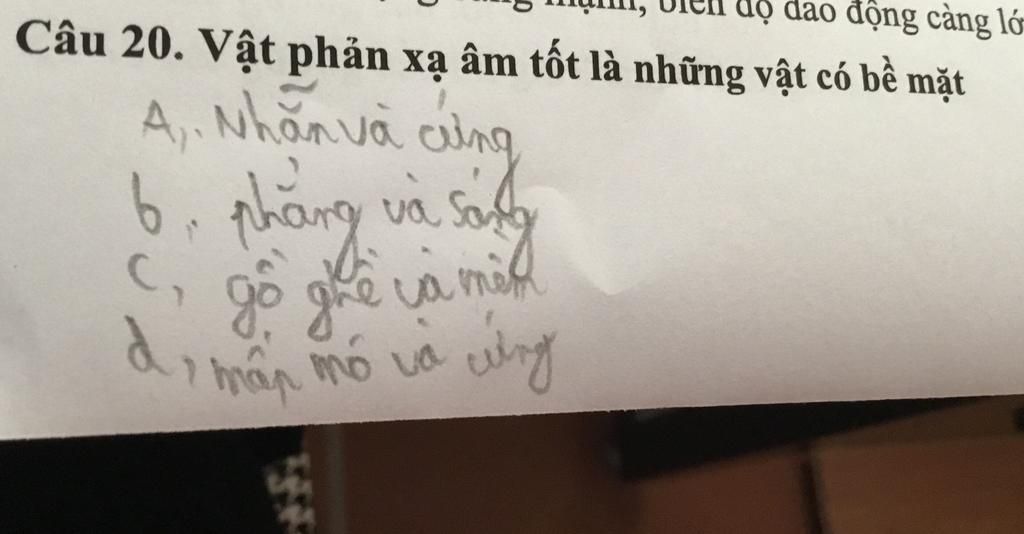 mạnh, biên độ dao động càng lớ
Câu 20. Vật phản xạ âm tốt là những vật có bề mặt
A,. Nhẵn và cứng
b,. phẳng và sáng
c, gồ ghề và mềm
d, mấp mó và cứng